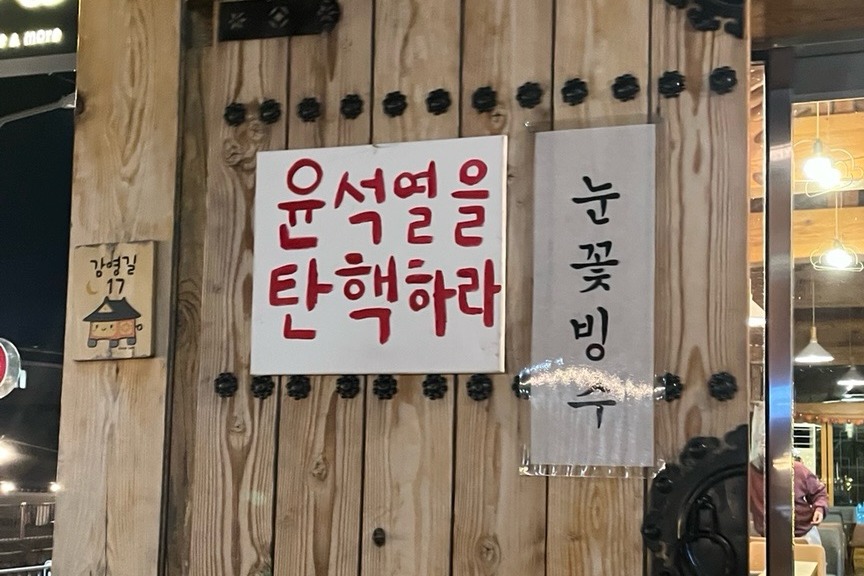 & more
강영길
17
윤석열을
탄핵하라
눈꽃빙수